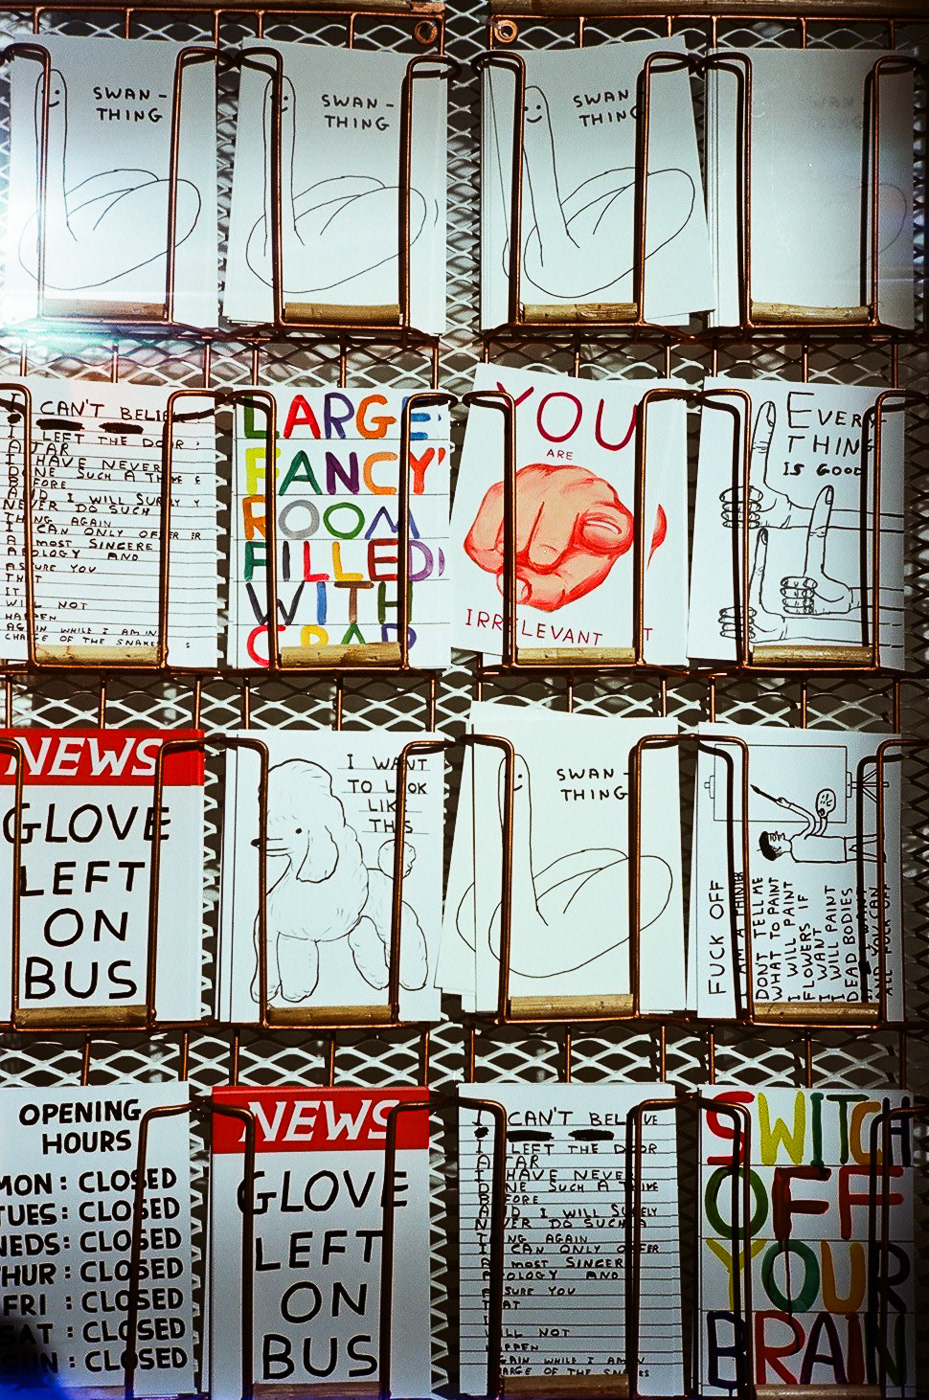 SWAN-
THING
SWAN-
THING
SWAN
THING
I CAN'T BELIE
I LEFT THE DOOR
AJAR
I HAVE NEVER
DONE SUCH A THING
BEFORE
AND I WILL SURELY
NEVER DO SUCH
THING AGAIN
I CAN ONLY OFFER
A MOST SINCERE
APOLOGY AND
ASSURE YOU
THAT
IT
WILL NOT
HAPPEN
AGAIN WHILE I AM IN
CHARGE OF THE SNAKES
LARGE
FANCY
ROOM
FILLED
WITH
CRAP
YOU
ARE
IRRELEVANT
EVERY-
THING
IS GOOD
NEWS
GLOVE
LEFT
ON
BUS
I WANT
TO LOOK
LIKE
THIS
SWAN-
THING
FUCK OFF
I AM A PAINTER
DONT TELL ME
WHAT TO PAINT
I WILL PAINT
FLOWERS IF
I WANT
I WILL PAINT
DEAD BODIES
IF I WANT
AND YOU CAN
ALL FUCK OFF
OPENING
HOURS
MON: CLOSED
TUES: CLOSED
WEDS: CLOSED
THUR: CLOSED
FRI : CLOSED
SAT : CLOSED
SUN : CLOSED
NEWS
GLOVE
LEFT
ON
BUS
I CAN'T BELIEVE
I LEFT THE DOOR
AJAR
I HAVE NEVER
DONE SUCH A THING
BEFORE
AND I WILL SURELY
NEVER DO SUCH A
THING AGAIN
I CAN ONLY OFFER
A MOST SINCERE
APOLOGY AND
ASSURE YOU
THAT
IT
WILL NOT
HAPPEN
AGAIN WHILE I AM IN
CHARGE OF THE SNAKES
SWITCH
OFF
YOUR
BRAIN